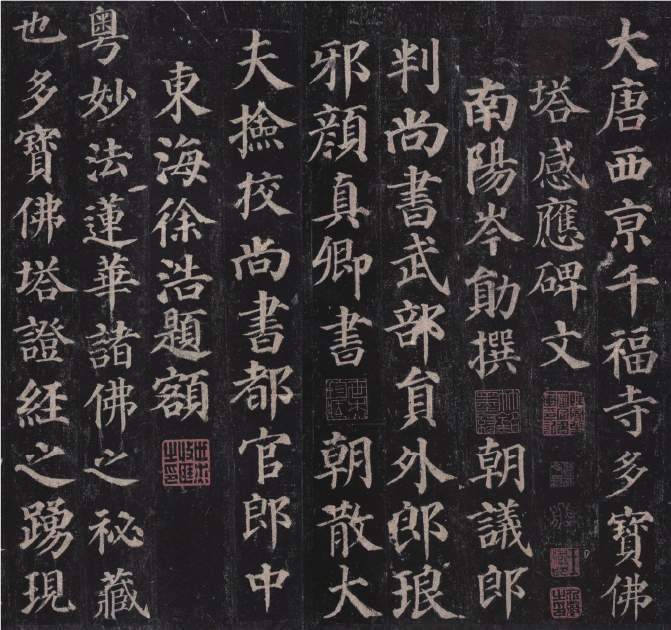 大唐西京千福寺多寶佛
塔感應碑文
南陽岑勛撰　朝議郎
判尚書武部員外郎琅
邪顏真卿書　朝散大
夫撿挍尚書都官郎中
東海徐浩題額
粵妙法蓮華諸佛之祕藏
也多寶佛塔證經之踴現